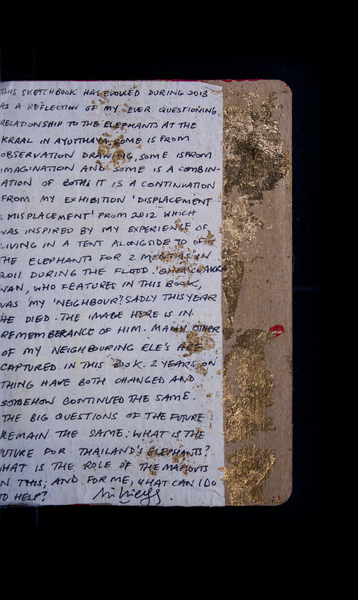 THIS SKETCHBOOK HAS EVOLVED DURING 2013
AS A REFLECTION OF MY EVER QUESTIONING
RELATIONSHIP TO THE ELEPHANTS AT THE
KRAAL IN AYUTTHAYA, SOME IS FROM
OBSERVATION DRAWING, SOME IS FROM
IMAGINATION AND SOME IS A COMBIN-
ATION OF BOTH. IT IS A CONTINUATION
FROM MY EXHIBITION 'DISPLACEMENT
: MISPLACEMENT' FROM 2012 WHICH
WAS INSPIRED BY MY EXPERIENCE OF
LIVING IN A TENT ALONGSIDE 70 OF
THE ELEPHANTS FOR 2 MONTHS IN
2011 DURING THE FLOOD.
WAN, WHO FEATURES IN THIS BOOK,
WAS MY 'NEIGHBOUR'! SADLY THIS YEAR
HE DIED. THE IMAGE HERE IS IN
REMEMBERANCE OF HIM. MANY OTHER
OF MY NEIGHBOURING ELE'S ARE
CAPTURED IN THIS BOOK. 2 YEARS ON
THING HAVE BOTH CHANGED AND
SOMEHOW CONTINUED THE SAME.
THE BIG QUESTIONS OF THE FUTURE
REMAIN THE SAME: WHAT IS THE
FUTURE FOR THAILAND'S ELEPHANTS?
WHAT IS THE ROLE OF THE MAHOUTS
IN THIS; AND, FOR ME, WHAT CAN I DO
TO HELP?